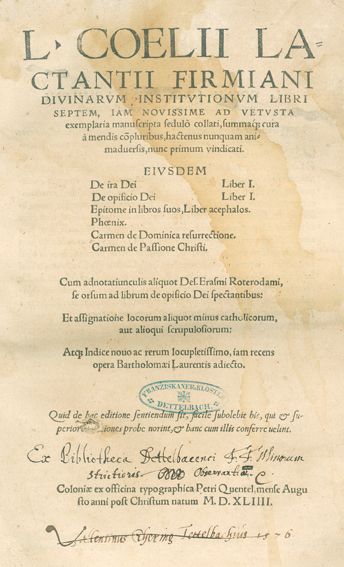 L. COELII LA=
CTANTII FIRMIANI
DIVINARVM INSTITVTIONVM LIBRI
SEPTEM, IAM NOVISSIME AD VETVSTA
exemplaria manuscripta sedulò collati, summaq; cura
à mendis cõpluribus, hactenus nunquam ani-
maduersis, nunc primum vindicati.
EIVSDEM
De ira Dei Liber I.
De opificio Dei Liber I.
Epitome in libros suos, Liber acephalos.
Phœnix.
Carmen de Dominica resurrectione.
Carmen de Passione Christi.
Cum adnotatiunculis aliquot Des. Erasmi Roterodami,
seorsum ad librum de opificio Dei spectantibus:
Et assignatione locorum aliquot minus catholicorum,
aut alioqui scrupulosiorum:
Atq; Indice nouo ac rerum locupletissimo, iam recens
opera Bartholomæi Laurentis adiecto.
FRANZISKANER-KLOSTER
DETTELBACH.
Quid de hac editione sentiendum sit, facile subolebit his, qui &
superiores editiones probe norint, & hanc cum illis conferre uelint.
Ex Bibliotheca Dettelbacensi F.F. Minorum
strictioris Observantiæ
Coloniæ ex officina typographica Petri Quentel, mense Augu
sto anni post Christum natum M. D. XLIIII.
Valentinus Tettelbachius 1576